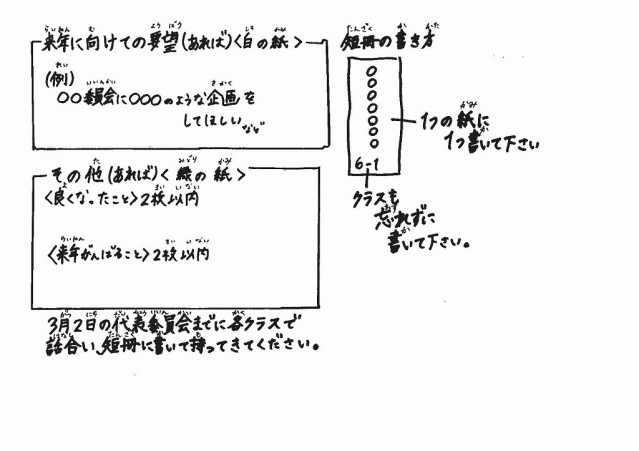 来年に向けての要望(あれば)<白の紙>
(例)
○○委員会に○○○のような企画を
してほしいなど
その他(あれば)<緑の紙>
<良くなったこと>2枚以内
<来年がんばること>2枚以内
3月2日の代表委員会までに各クラスで
話合い、短冊に書いて持ってきてください。
短冊の書き方
○
○
○
○
○
○
○
6-1
1つの紙に
1つ書いて下さい
クラスも
忘れずに
書いて下さい。